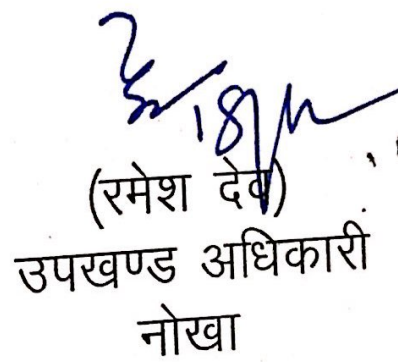 18/11
(रमेश देव)
उपखण्ड अधिकारी
नोखा